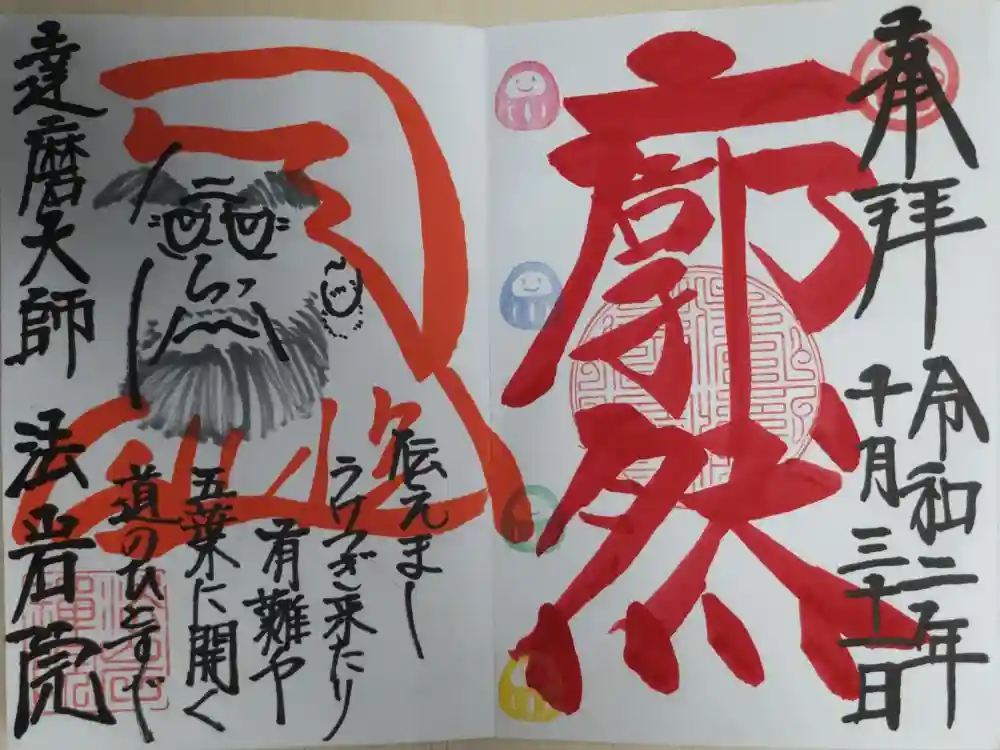 奉拝
令和二年
十月三十一日
廓然
伝えまし
うけつぎ来たり
有難や
五葉に開く
道のひとすじ
達磨大師
法岩院